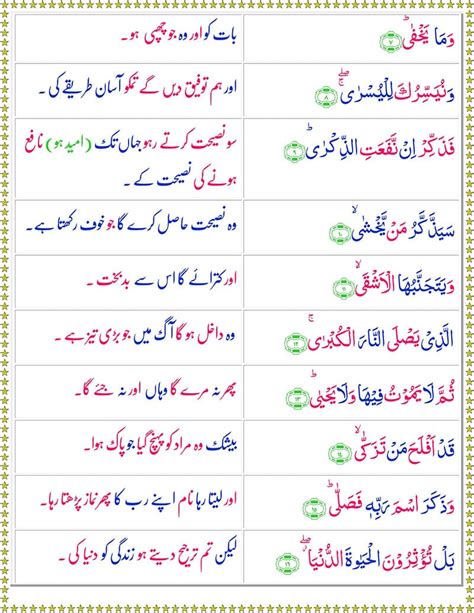 وَمَا يَخْفٰىؕ ۝۷
بات کو اور وہ جو چھپی ہو۔
وَنُيَسِّرُكَ لِلْيُسْرٰىۚۖ ۝۸
اور ہم توفیق دیں گے تمکو آسان طریقے کی۔
فَذَكِّرْ اِنْ نَّفَعَتِ الذِّكْرٰىؕ ۝۹
سو نصیحت کرتے رہو جہاں تک (امید ہو) نافع
ہونے کی نصیحت کے۔
سَيَذَّكَّرُ مَنْ يَّخْشٰىۙ ۝۱۰
وہ نصیحت حاصل کرے گا جو خوف رکھتا ہے۔
وَيَتَجَنَّبُهَا الْاَشْقَىۙ ۝۱۱
اور کترائے گا اس سے بد بخت۔
الَّذِىْ يَصْلَى النَّارَ الْكُبْرٰىۚ ۝۱۲
وہ داخل ہو گا آگ میں جو بڑی تیز ہے۔
ثُمَّ لَا يَمُوْتُ فِيْهَا وَلَا يَحْيٰىؕ ۝۱۳
پھر نہ مرے گا وہاں اور نہ جئے گا۔
قَدْ اَفْلَحَ مَنْ تَزَكّٰىۙ ۝۱۴
بیشک وہ مراد کو پہنچ گیا جو پاک ہوا۔
وَذَكَرَ اسْمَ رَبِّهٖ فَصَلّٰىؕ ۝۱۵
اور لیتا رہا نام اپنے رب کا پھر نماز پڑھتا رہا۔
بَلْ تُؤْثِرُوْنَ الْحَيٰوةَ الدُّنْيَاۖ ۝۱۶
لیکن تم ترجیح دیتے ہو زندگی کو دنیا کی۔